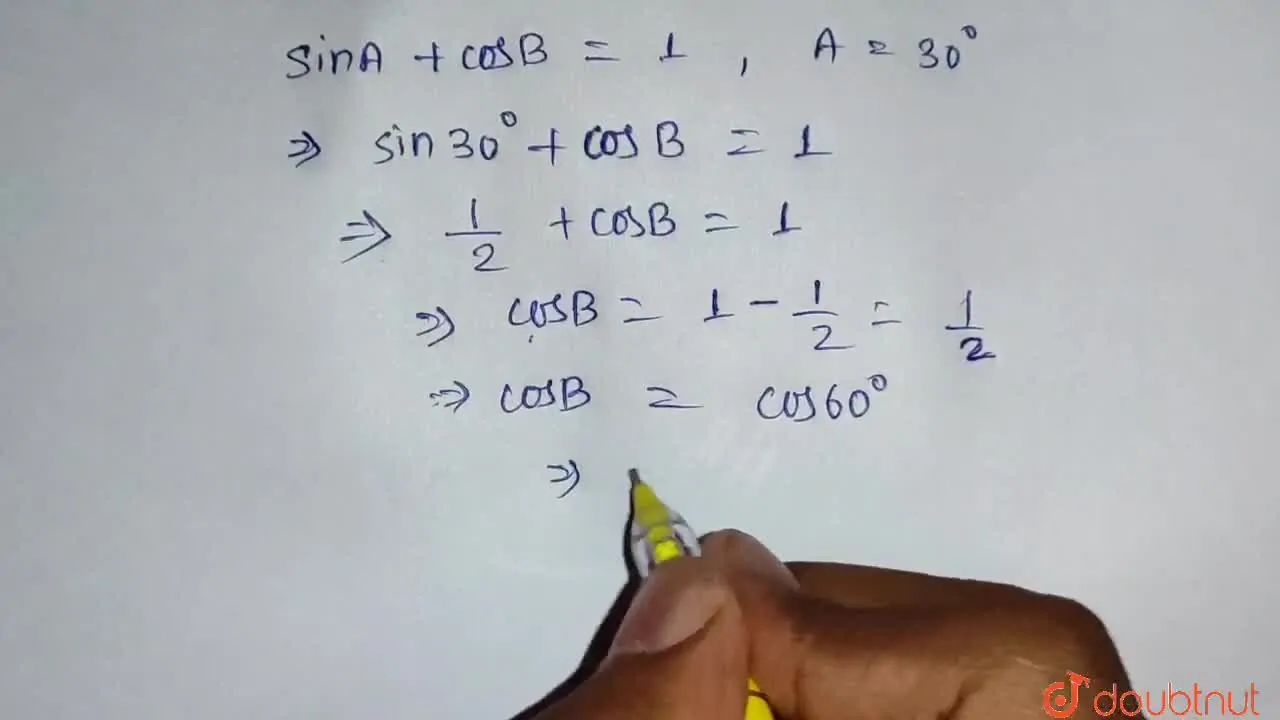 sinA + cosB = 1 , A = 30°
⇒ sin30° + cosB = 1
⇒ 1/2 + cosB = 1
⇒ cosB = 1 - 1/2 = 1/2
⇒ cosB = cos60°
⇒
doubtnut